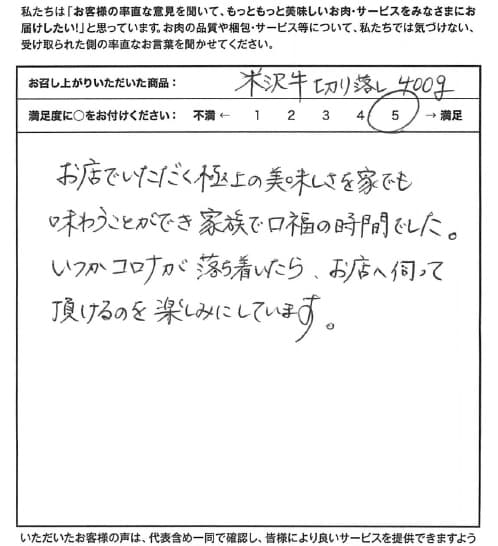 私たちは「お客様の率直な意見を聞いて、もっともっと美味しいお肉・サービスをみなさまにお
届けしたい!」と思っています。お肉の品質や梱包・サービス等について、私たちでは気づけない、
受け取られた側の率直なお言葉を聞かせてください。
お召し上がりいただいた商品： 米沢牛切り落し 400g
満足度に○をお付けください： 不満 ← 1 2 3 4 5 → 満足
お店でいただく極上の美味しさを家でも
味わうことができ家族で口福の時間でした。
いつかコロナが落ち着いたら、お店へ伺って
頂けるのを楽しみにしています。
いただいたお客様の声は、代表含め一同で確認し、皆様により良いサービスを提供できますよう